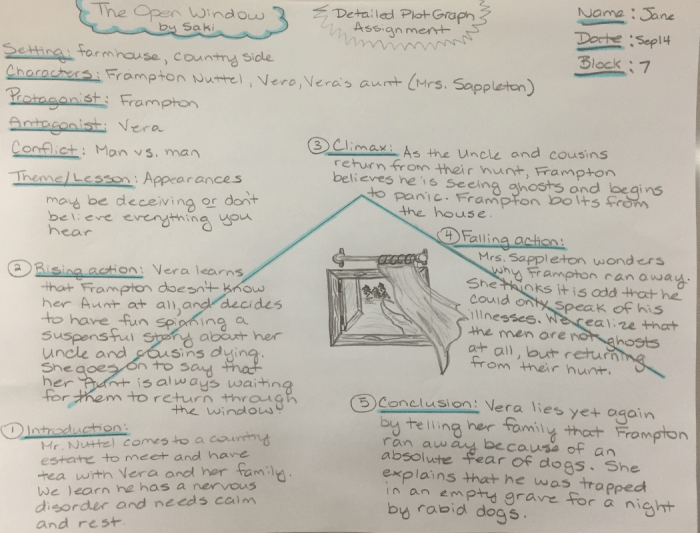 The Open Window
by Saki
Detailed Plot Graph
Assignment
Name: Jane
Date: Sep14
Block: 7
Setting: farmhouse, country side
Characters: Frampton Nuttel, Vera, Vera's aunt (Mrs. Sappleton)
Protagonist: Frampton
Antagonist: Vera
Conflict: Man vs. man
Theme/Lesson: Appearances
may be deceiving or don't
believe everything you
hear
③ Climax: As the Uncle and cousins
return from their hunt, Frampton
believes he is seeing ghosts and begins
to panic. Frampton bolts from
the house.
② Rising action: Vera learns
that Frampton doesn't know
her Aunt at all, and decides
to have fun spinning a
suspensful story about her
uncle and cousins dying.
She goes on to say that
her Aunt is always waiting
for them to return through
the window
④ Falling action:
Mrs. Sappleton wonders
why Frampton ran away.
She thinks it is odd that he
could only speak of his
illnesses. We realize that
the men are not ghosts
at all, but returning
from their hunt.
① Introduction:
Mr. Nuttel comes to a country
estate to meet and have
tea with Vera and her family.
We learn he has a nervous
disorder and needs calm
and rest.
⑤ Conclusion: Vera lies yet again
by telling her family that Frampton
ran away because of an
absolute fear of dogs. She
explains that he was trapped
in an empty grave for a night
by rabid dogs.